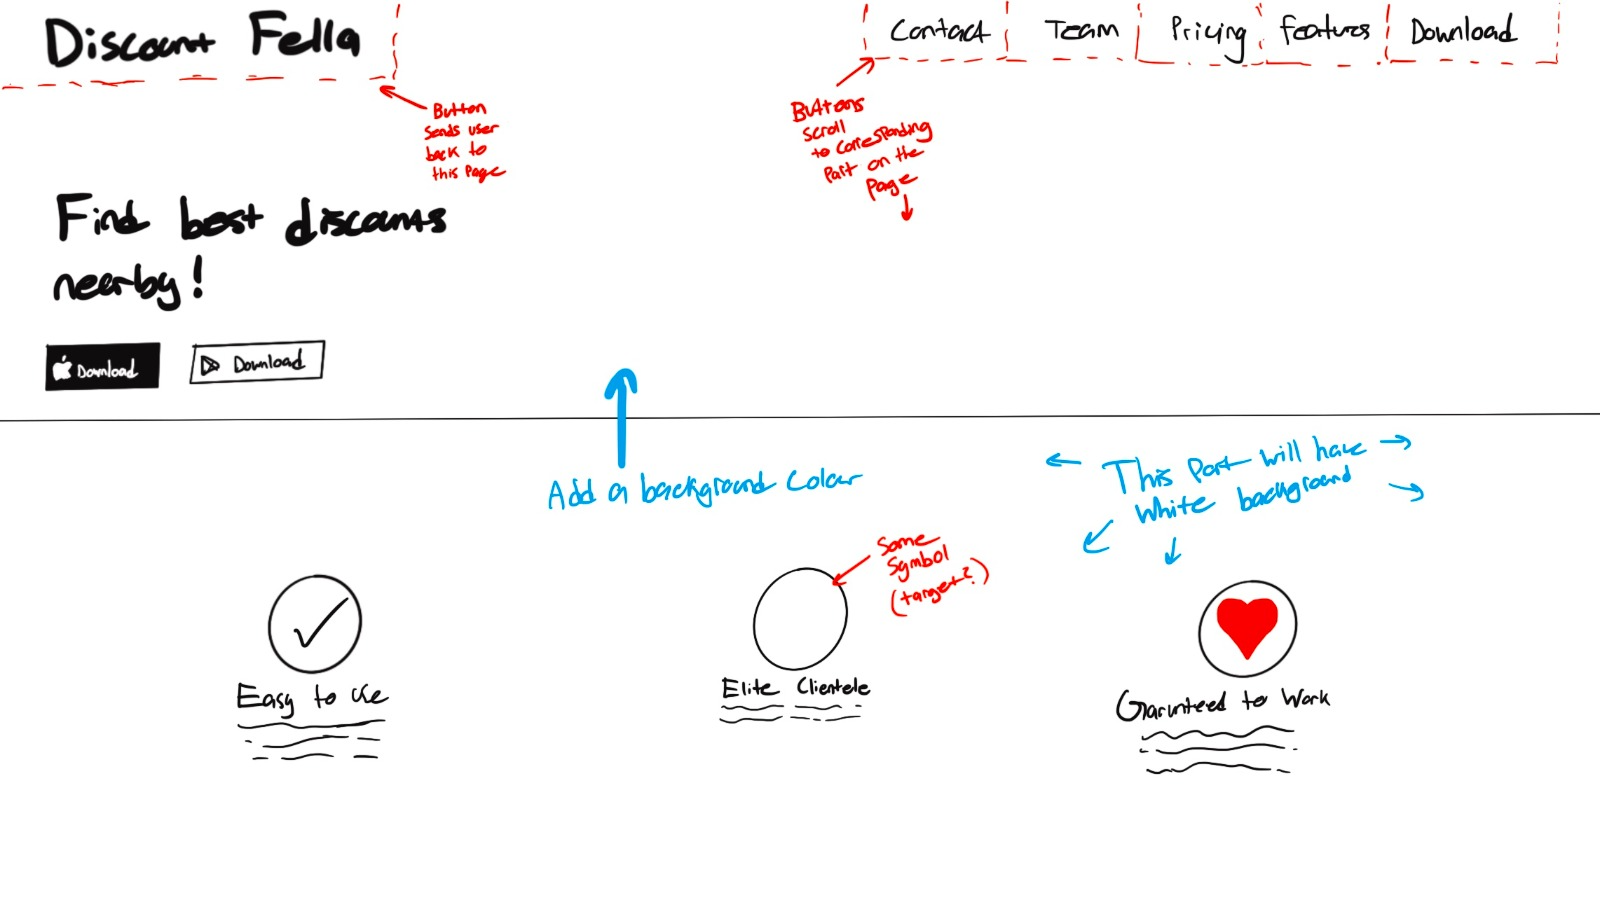 Discount Fella
Contact
Team
Pricing
Features
Download
Button
Sends user
back to
this Page
Buttons
Scroll
to corresponding
Part on the
Page
Find best discounts
nearby!
Download
Download
Add a background Colour
This Part will have
White background
Some
Symbol
(target?)
Easy to Use
Elite Clientele
Garunteed to Work